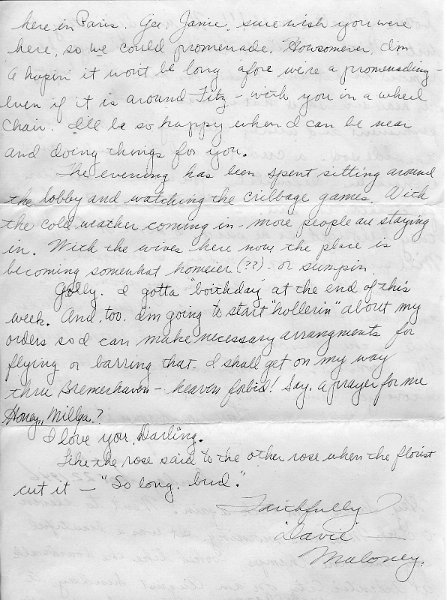 here in Paris. Yea, Janie, sure wish you were
here, so we could promenade. Howsomever, I'm
a hopin' it won't be long afore we're a promenading -
even if it is around Fitz - with you in a wheel
chair. I'll be so happy when I can be near
and doing things for you.
The evening has been spent sitting around
the lobby and watching the cribbage games. With
the cold weather coming in - more people are staying
in. With the wives here now the place is
becoming somewhat homeier (??) - or sumpin.
Golly. I gotta "birthday" at the end of this
week. And, too. I'm going to start "hollerin" about my
orders so I can make necessary arrangments for
flying or barring that, I shall get on my way
thru Bremerhaven - heaven fobid! Say a prayer for me
Honey, Willya?
I love you Darling.
Like the rose said to the other rose when the florist
cut it - "So long, bud."
Faithfully
David
Maloney.